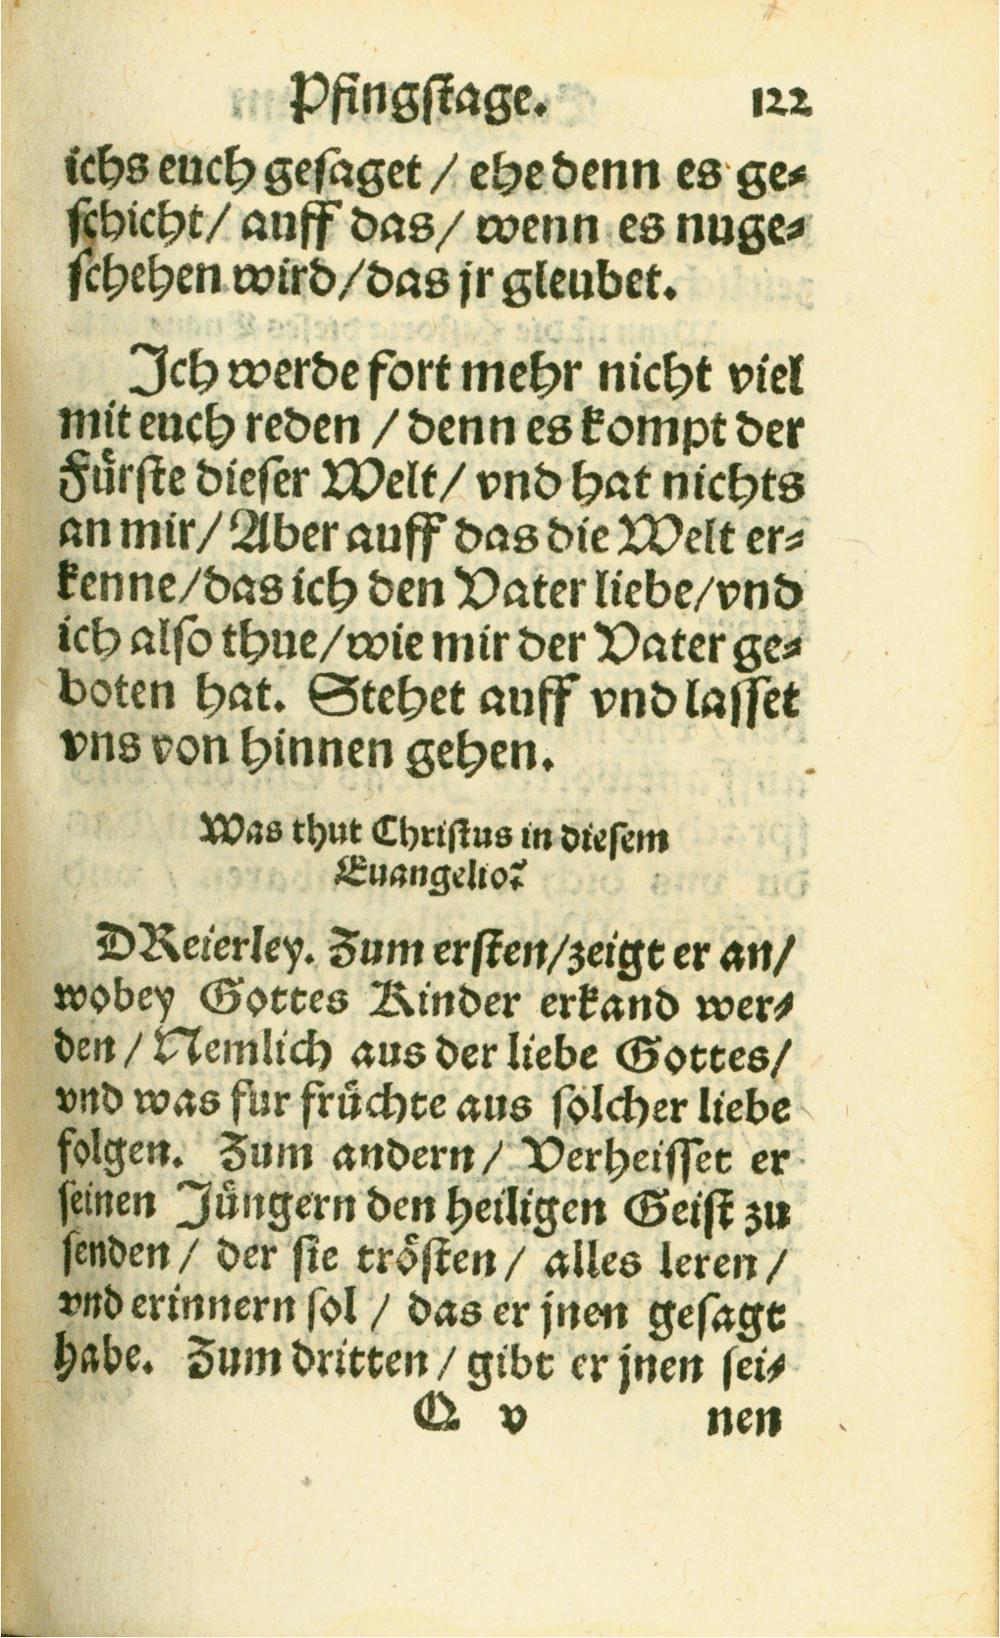 Pfingstage. 122
ichs euch gesaget / ehe denn es ge⸗
schicht / auff das / wenn es nu ge⸗
schehen wird / das jr gleubet.
Ich werde fort mehr nicht viel
mit euch reden / denn es kompt der
Fürste dieser Welt / vnd hat nichts
an mir / Aber auff das die Welt er⸗
kenne / das ich den Vater liebe / vnd
ich also thue / wie mir der Vater ge⸗
boten hat. Stehet auff vnd lasset
vns von hinnen gehen.
Was thut Christus in diesem
Euangelio?
DReierley. Zum ersten / zeigt er an /
wobey Gottes Kinder erkand wer⸗
den / Nemlich aus der liebe Gottes /
vnd was fur früchte aus solcher liebe
folgen. Zum andern / Verheisset er
seinen Jüngern den heiligen Geist zu
senden / der sie trösten / alles leren /
vnd erinnern sol / das er jnen gesagt
habe. Zum dritten / gibt er jnen sei⸗
Q v nen